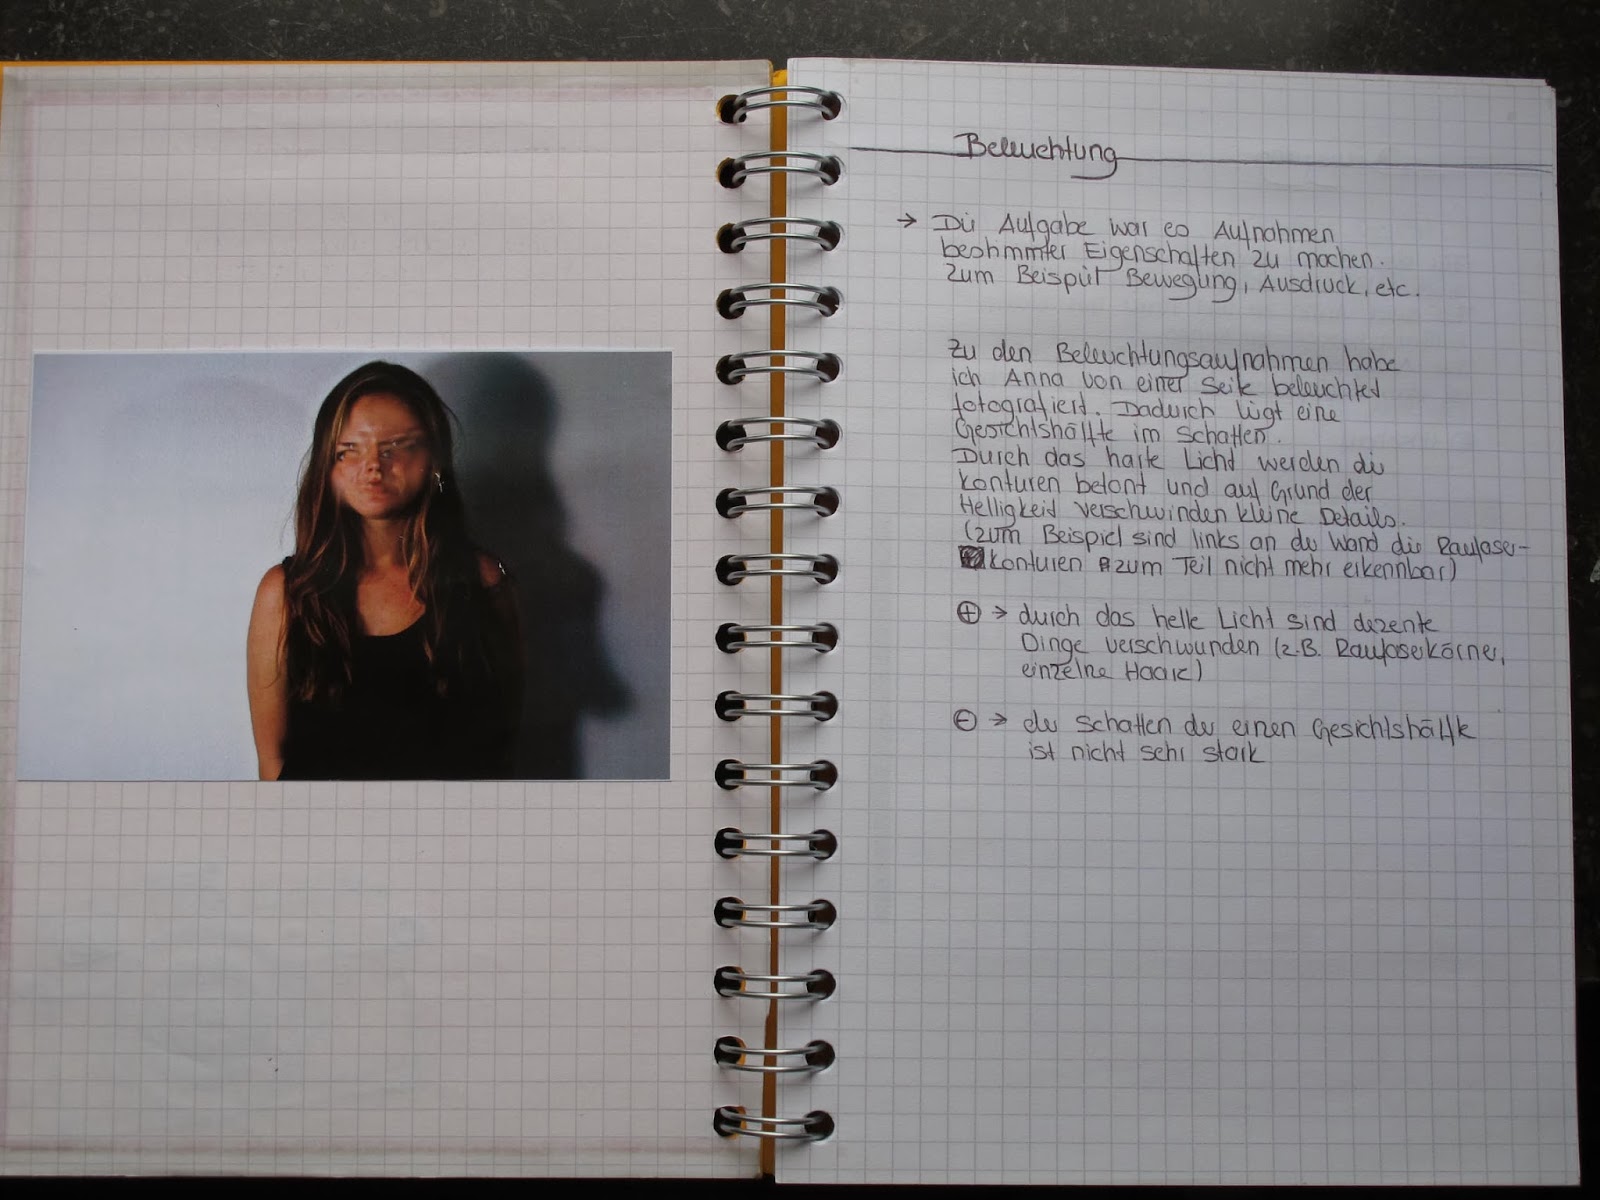 Beleuchtung
→ Die Aufgabe war es Aufnahmen
bestimmter Eigenschaften zu machen.
Zum Beispiel Bewegung, Ausdruck, etc.
Zu den Beleuchtungsaufnahmen habe
ich Anna von einer Seite beleuchtet
fotografiert. Dadurch liegt eine
Gesichtshälfte im Schatten.
Durch das harte Licht werden die
Konturen betont und auf Grund der
Helligkeit verschwinden kleine Details.
(zum Beispiel sind links an der Wand die Raufaser-
konturen zum Teil nicht mehr erkennbar)
⊕ → durch das helle Licht sind dezente
Dinge verschwunden (z.B. Raufaserkörner,
einzelne Haare)
⊖ → der Schatten der einen Gesichtshälfte
ist nicht sehr stark